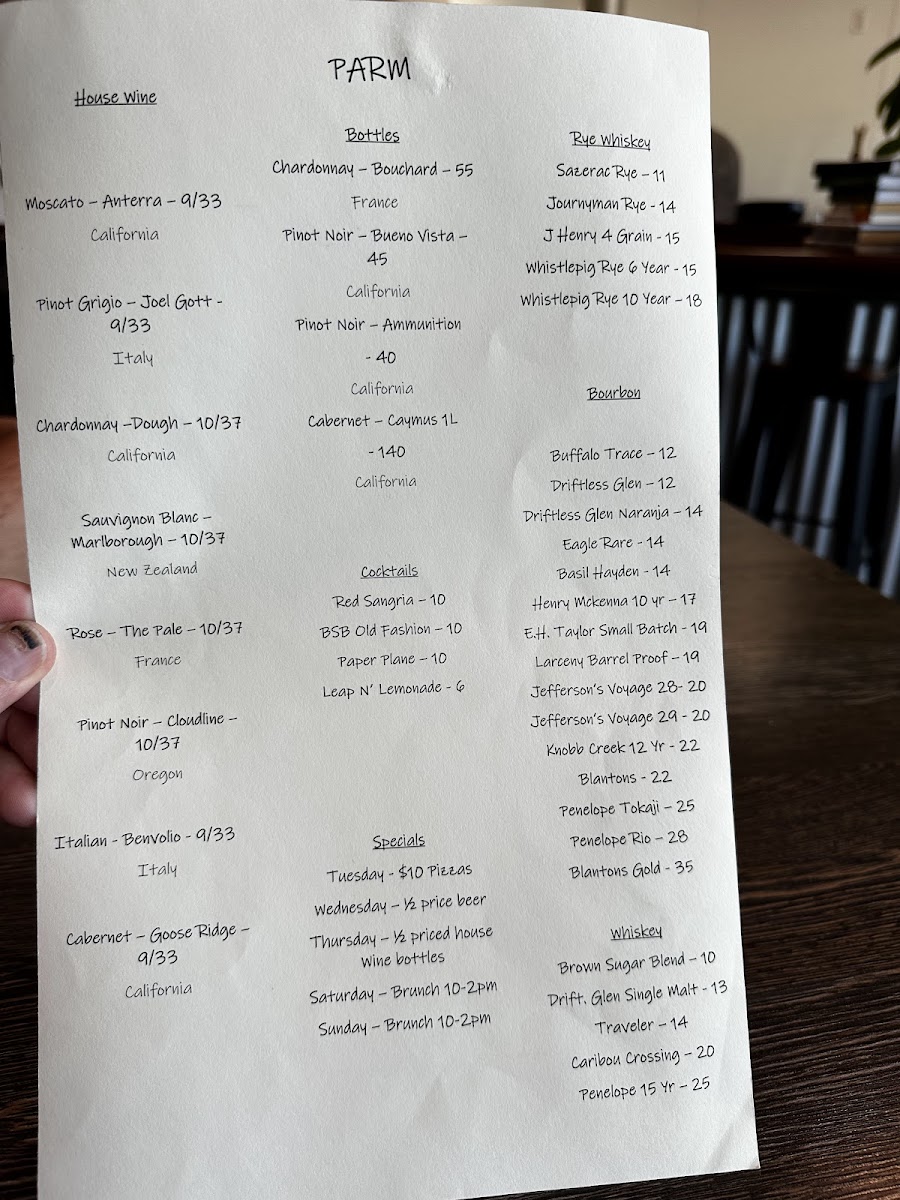 PARM
House Wine
Moscato – Anterra – 9/33
California
Pinot Grigio – Joel Gott -
9/33
Italy
Chardonnay –Dough – 10/37
California
Sauvignon Blanc –
Marlborough – 10/37
New Zealand
Rose – The Pale – 10/37
France
Pinot Noir – Cloudline –
10/37
Oregon
Italian - Benvolio - 9/33
Italy
Cabernet – Goose Ridge –
9/33
California
Bottles
Chardonnay – Bouchard – 55
France
Pinot Noir – Bueno Vista –
45
California
Pinot Noir – Ammunition
- 40
California
Cabernet – Caymus 1L
- 140
California
Cocktails
Red Sangria – 10
BSB Old Fashion – 10
Paper Plane – 10
Leap N' Lemonade - 6
Specials
Tuesday - $10 Pizzas
Wednesday – ½ price beer
Thursday – ½ priced house
wine bottles
Saturday – Brunch 10-2pm
Sunday – Brunch 10-2pm
Rye Whiskey
Sazerac Rye – 11
Journyman Rye - 14
J Henry 4 Grain - 15
Whistlepig Rye 6 Year - 15
Whistlepig Rye 10 Year – 18
Bourbon
Buffalo Trace – 12
Driftless Glen – 12
Driftless Glen Naranja – 14
Eagle Rare - 14
Basil Hayden - 14
Henry Mckenna 10 yr – 17
E.H. Taylor Small Batch - 19
Larceny Barrel Proof – 19
Jefferson's Voyage 28- 20
Jefferson's Voyage 29 - 20
Knobb Creek 12 Yr - 22
Blantons - 22
Penelope Tokaji – 25
Penelope Rio – 28
Blantons Gold - 35
Whiskey
Brown Sugar Blend – 10
Drift. Glen Single Malt - 13
Traveler – 14
Caribou Crossing – 20
Penelope 15 Yr – 25